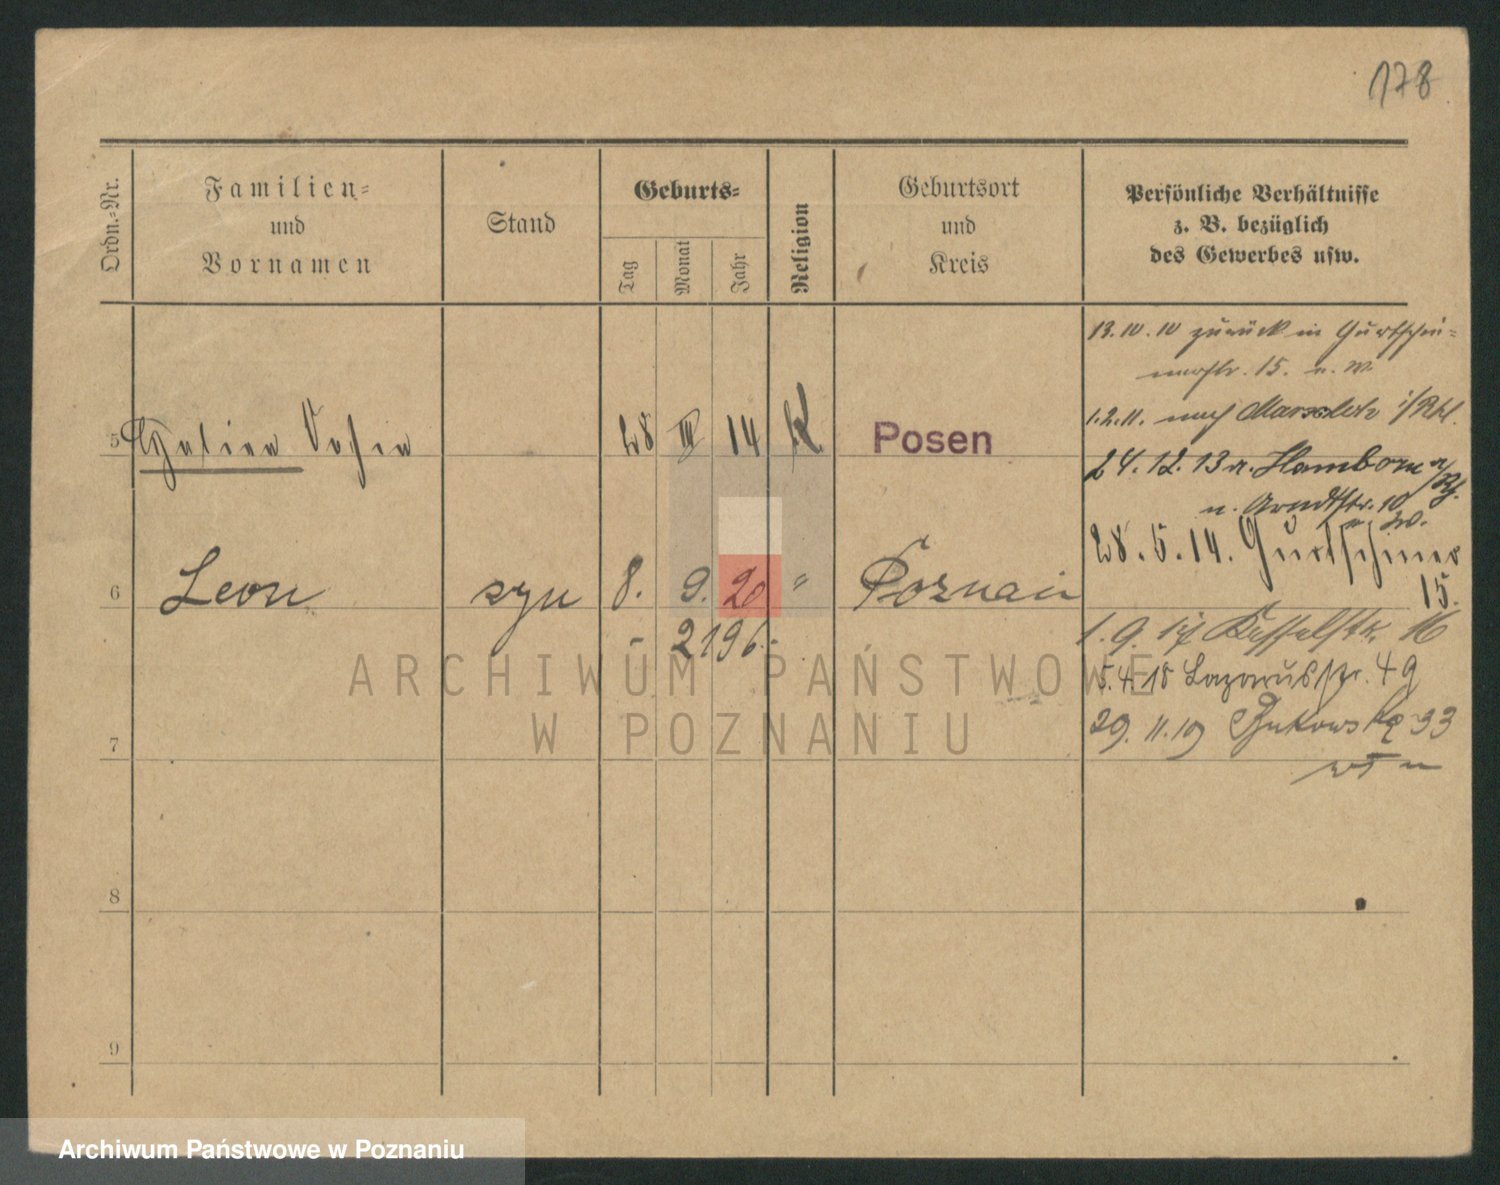 178
Ordn.-Nr.
Familien-
und
Vornamen
Stand
Geburts-
Tag
Monat
Jahr
Religion
Geburtsort
und
Kreis
Persönliche Verhältnisse
z. B. bezüglich
des Gewerbes usw.
13.10.10 zurück in Gurtschin-
15.
1.2.11. nach
5
28 III 14 K Posen
24.12.13 a. Hamborn a/Rh.
n. Arndtstr. 10
28.5.14. Gurtschiner
15.
6 Leon syn 8. 9. 20 " Poznań
- 2196.-
1.9. Kesselstr. 16
5.4.18 Lazarusstr. 49
29.11.19 Bukowska 33
7
8
9
ARCHIWUM PAŃSTWOWE
W POZNANIU
Archiwum Państwowe w Poznaniu